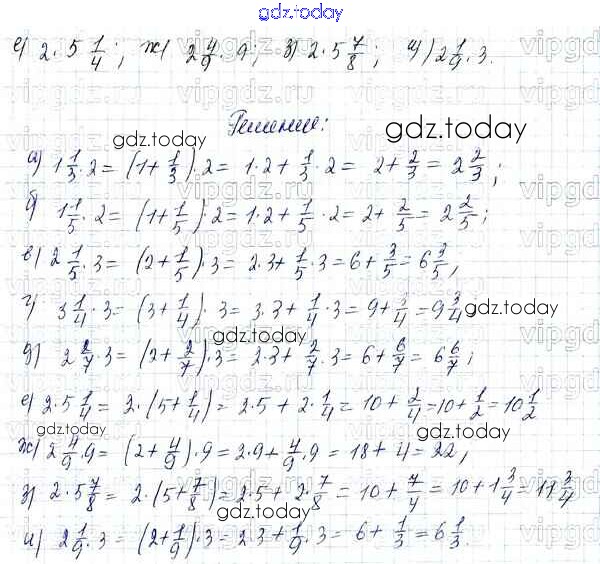 gdz.today
е) 2 · 5 1/4; ж) 2 4/9 · 9; з) 2 · 5 7/8; и) 2 1/9 · 3.
Решение:
gdz.today
gdz.today
а) 1 1/3 · 2 = (1 + 1/3) · 2 = 1 · 2 + 1/3 · 2 = 2 + 2/3 = 2 2/3;
б) 1 1/5 · 2 = (1 + 1/5) · 2 = 1 · 2 + 1/5 · 2 = 2 + 2/5 = 2 2/5;
в) 2 1/5 · 3 = (2 + 1/5) · 3 = 2 · 3 + 1/5 · 3 = 6 + 3/5 = 6 3/5,
г) 3 1/4 · 3 = (3 + 1/4) · 3 = 3 · 3 + 1/4 · 3 = 9 + 3/4 = 9 3/4
gdz.today
gdz.today
д) 2 2/7 · 3 = (2 + 2/7) · 3 = 2 · 3 + 2/7 · 3 = 6 + 6/7 = 6 6/7;
е) 2 · 5 1/4 = 2 · (5 + 1/4) = 2 · 5 + 2 · 1/4 = 10 + 2/4 = 10 + 1/2 = 10 1/2
gdz.today
ж) 2 4/9 · 9 = (2 + 4/9) · 9 = 2 · 9 + 4/9 · 9 = 18 + 4 = 22,
з) 2 · 5 7/8 = 2 · (5 + 7/8) = 2 · 5 + 2 · 7/8 = 10 + 7/4 = 10 + 1 3/4 = 11 3/4
gdz.today
и) 2 1/9 · 3 = (2 + 1/9) · 3 = 2 · 3 + 1/9 · 3 = 6 + 1/3 = 6 1/3.